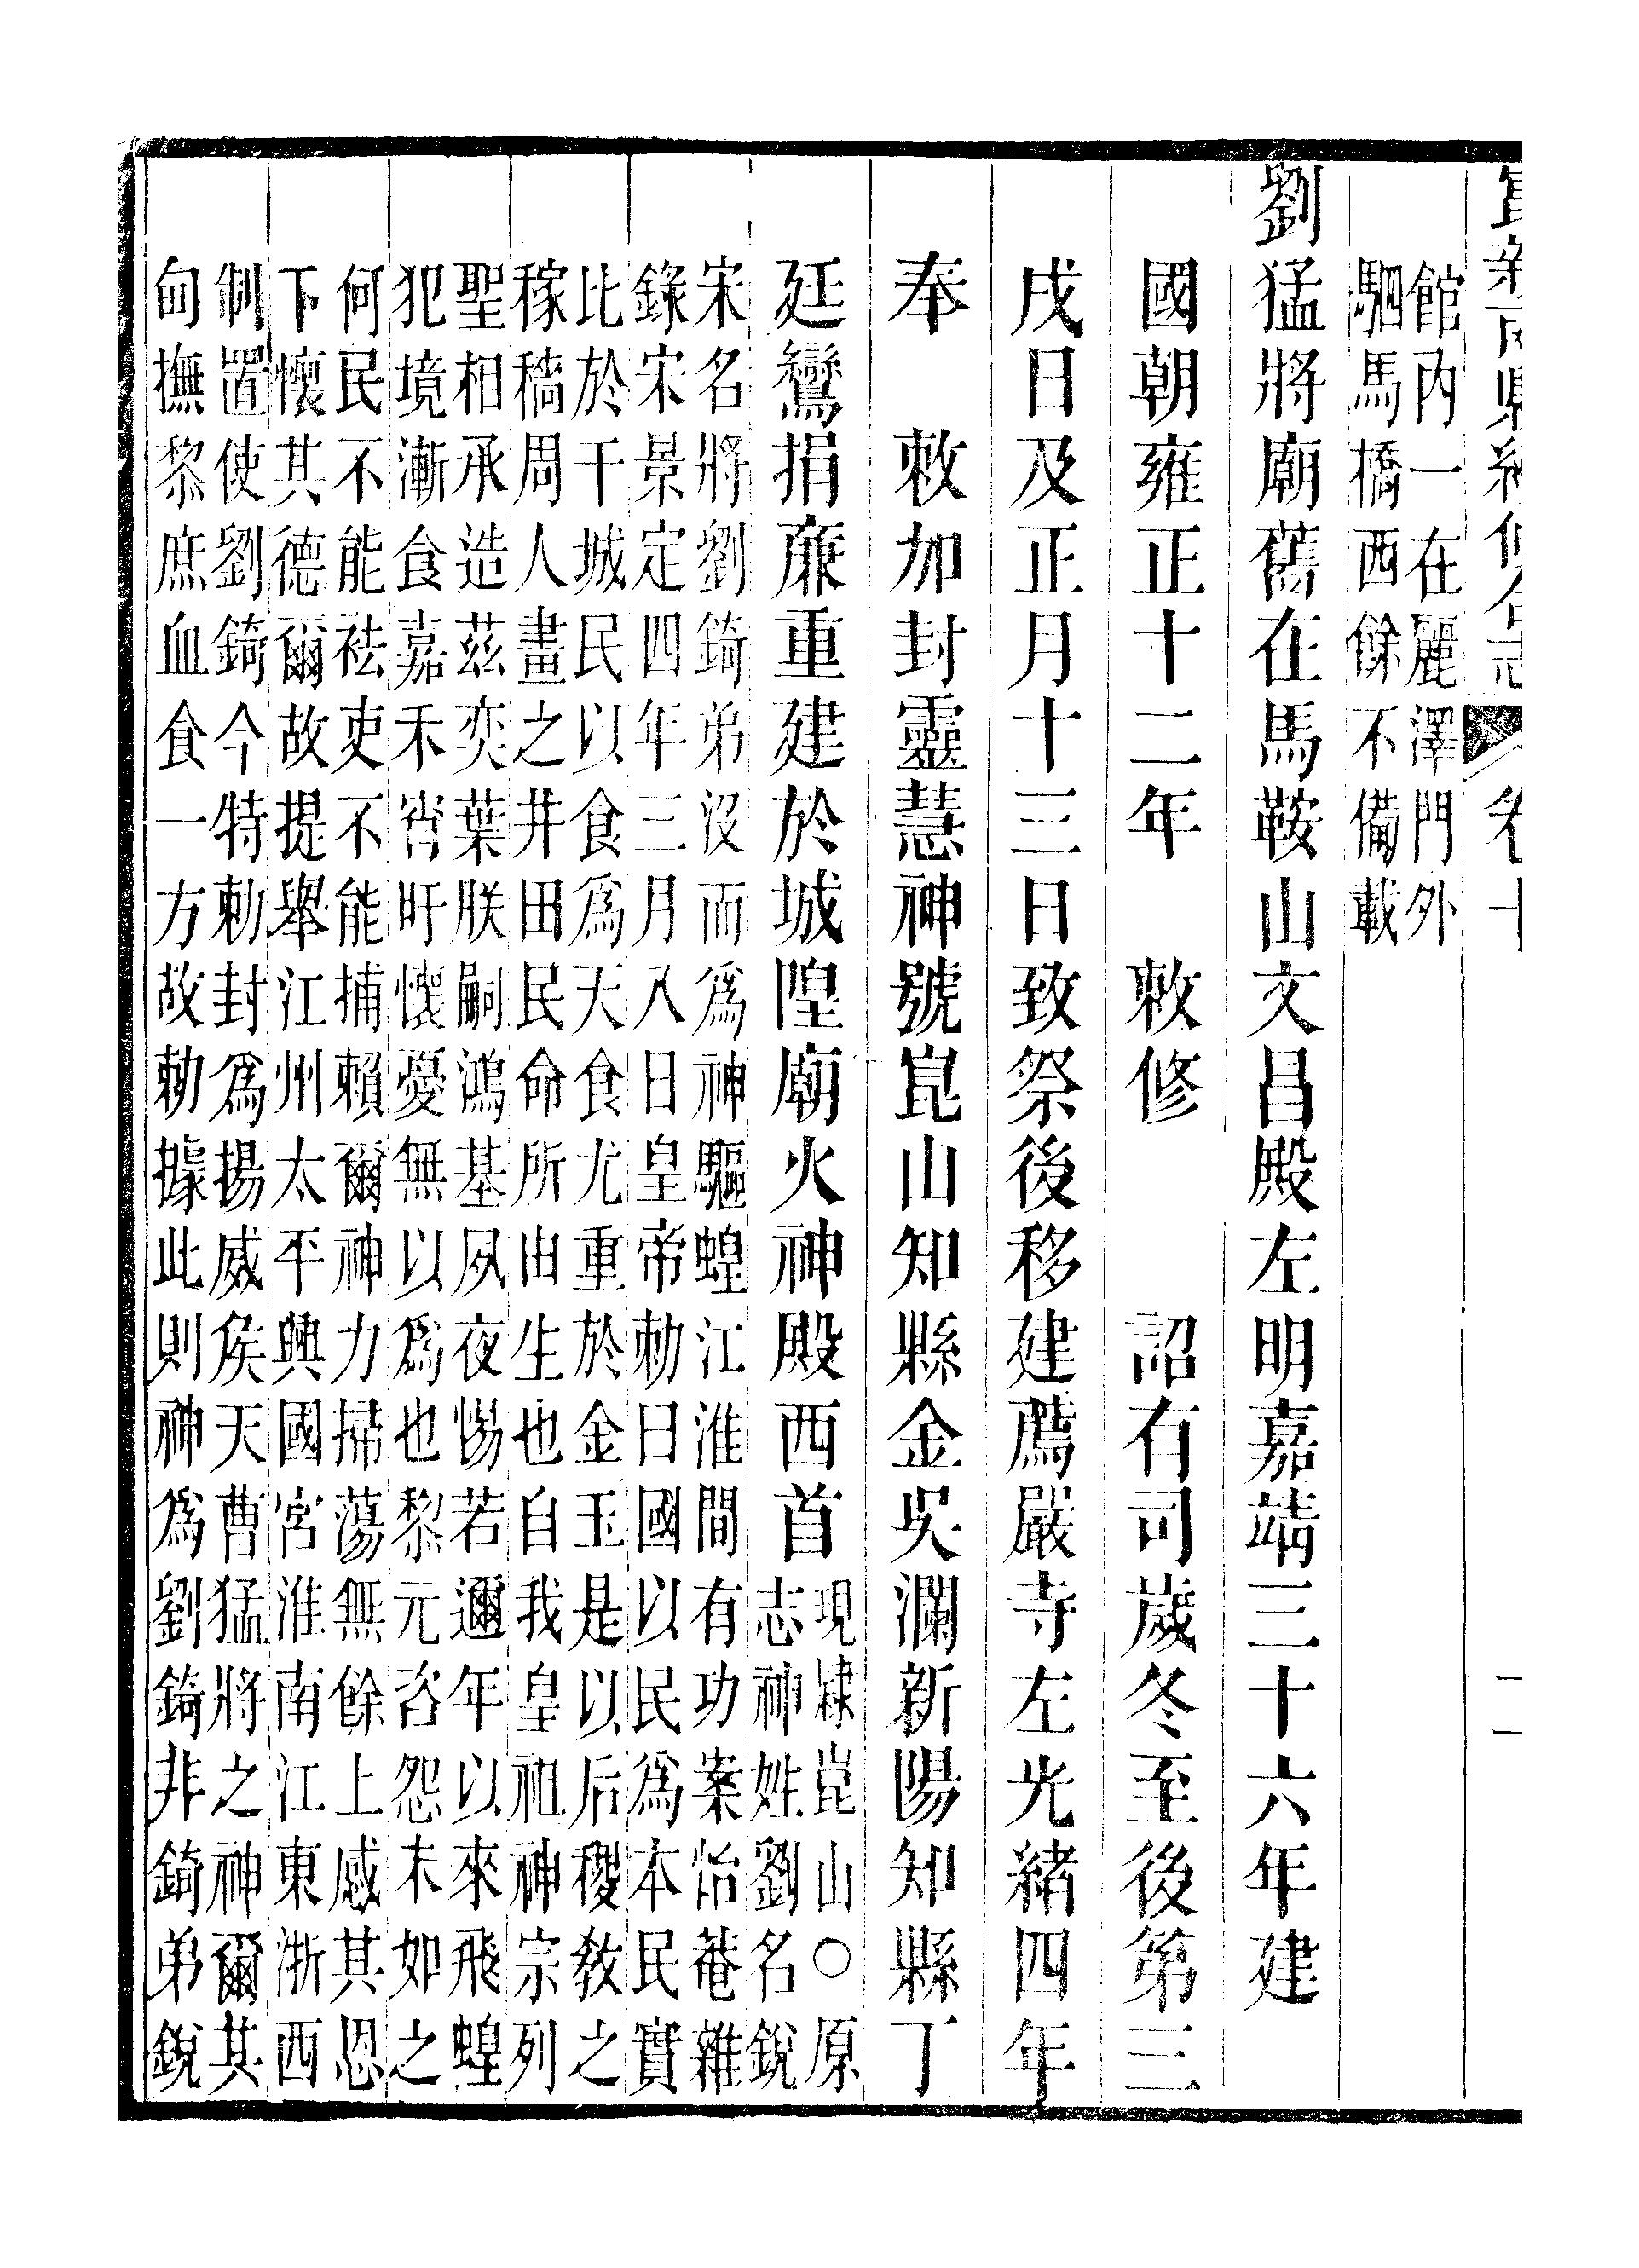 崑新兩縣續修合志 卷十 二
館內一在麗澤門外
駟馬橋西餘不備載
劉猛將廟舊在馬鞍山文昌殿左明嘉靖三十六年建
國朝雍正十二年 敕修 詔有司歲冬至後第三
戌日及正月十三日致祭後移建薦嚴寺左光緒四年
奉 敕加封靈慧神號崑山知縣金吳瀾新陽知縣丁
廷鸞捐廉重建於城隍廟火神殿西首
現隸崑山〇原
志神姓劉名銳
宋名將劉錡弟沒而爲神驅蝗江淮間有功案怡菴雜
錄宋景定四年三月八日皇帝勅曰國以民爲本民實
比於干城民以食爲天食尤重於金玉是以后稷教之
稼穡周人畫之井田民命所由生也自我皇祖神宗列
聖相承造茲奕葉朕嗣鴻基夙夜惕若邇年以來飛蝗
犯境漸食嘉禾宵旰懷憂無以爲也黎元咨怨末如之
何民不能祛吏不能捕賴爾神力掃蕩無餘上感其恩
下懷其德爾故提舉江州太平興國宮淮南江東浙西
制置使劉錡今特勅封爲揚威侯天曹猛將之神爾其
甸撫黎庶血食一方故勅據此則神爲劉錡非錡弟銳